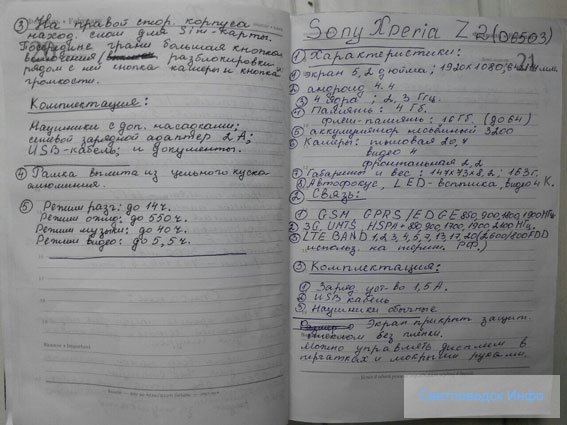 ③ На правой стор. корпуса
наход. слот для Sim-карты.
Посередине грани большая кнопка
включения разблокировки,
рядом с ней кнопка камеры и кнопка
громкости.
Комплектация:
Наушники с доп. насадками;
сетевой зарядной адаптер 2А;
USB-кабель; и документы.
④ Рамка вылита из цельного куска
алюминия.
⑤ Режим разг: до 14 ч.
Режим ожид: до 550 ч.
Режим музыки: до 40 ч.
Режим видео: до 5,5 ч.
Sony Xperia Z2 (D6503)
21
① Характеристики:
① экран 5,2 дюйма; 1920×1080;
② андроид 4.4
③ 4 ядра; 2,3 Ггц.
④ Память: Гб.
флеш-память: 16 Гб (до 64)
⑤ аккумулятор 3200
⑥ Камеры: тыловая 20,7
видео 4
фронтальная 2,2
⑦ Габариты и вес: 147×73×8.2; 163г.
⑧ Автофокус, LED-вспышка, видео 4К.
② Связь:
① GSM GPRS/EDGE 850, 900, 1800, 1900 МГц
② 3G, UMTS, HSPA+ 850, 900, 1700, 1900, 2100 МГц.
③ LTE BAND 1,2,3,4,5,7,13,17,20 (2600/800 FDD
использ. на террит. РФ.)
③ Комплектация:
① Заряд. уст-во 1,5А.
② USB кабель
③ Наушники обычные
Экран прикрыт защит.
стеклом без плёнки.
Можно управлять дисплеем в
перчатках и мокрыми руками.
Светловодск Инфо